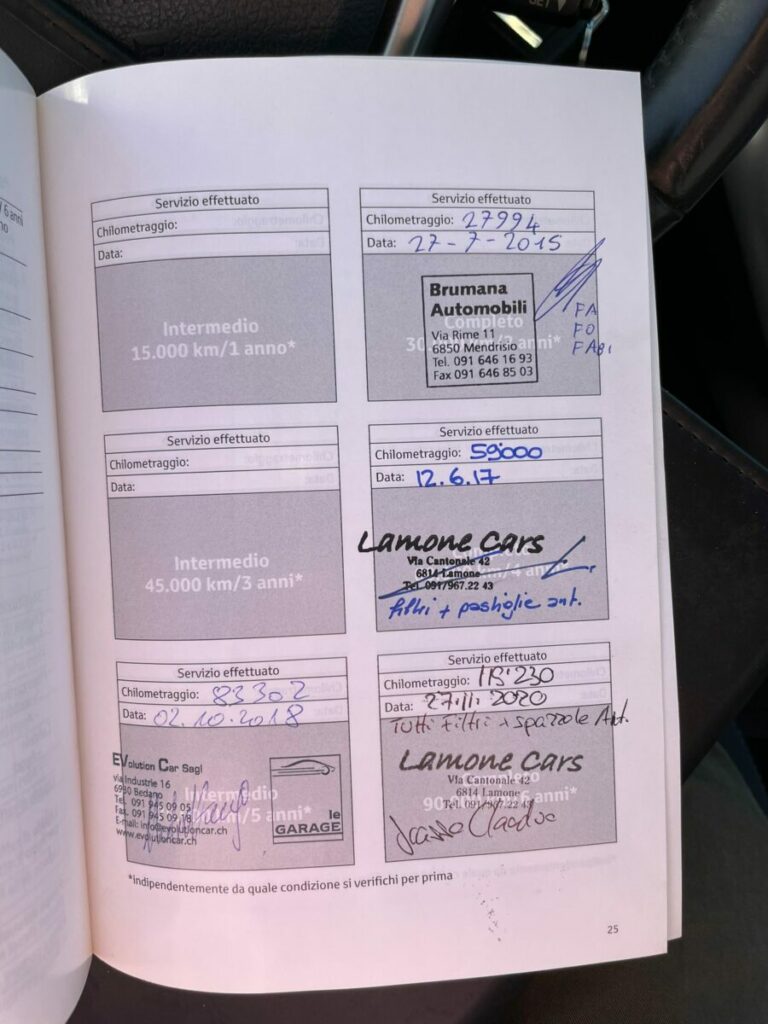 Servizio effettuato
Chilometraggio:
Data:
Intermedio
15.000 km/1 anno*
Servizio effettuato
Chilometraggio: 27994
Data: 27-7-2015
Brumana
Automobili
Completo
Via Rime 11
6850 Mendrisio
Tel. 091 646 16 93
Fax 091 646 85 03
FA
FO
FABI
Servizio effettuato
Chilometraggio:
Data:
Intermedio
45.000 km/3 anni*
Servizio effettuato
Chilometraggio: 59000
Data: 12.6.17
Lamone Cars
Via Cantonale 42
6814 Lamone
km/4 anni*
Tel. 091/967.22 43
filtri + pastiglie ant.
Servizio effettuato
Chilometraggio: 83302
Data: 02.10.2018
EVolution Car Sagl
via Industrie 16
6930 Bedano
Tel. 091 945 09 05
Fax. 091 945 09 18
E-mail: info@evolutioncar.ch
www.evolutioncar.ch
le
GARAGE
Servizio effettuato
Chilometraggio: 118'230
Data: 27.11.2020
Tutti Filtri + Spazzole Ant.
Lamone Cars
Via Cantonale 42
6814 Lamone
Tel. 091/967.22 43
*Indipendentemente da quale condizione si verifichi per prima
25